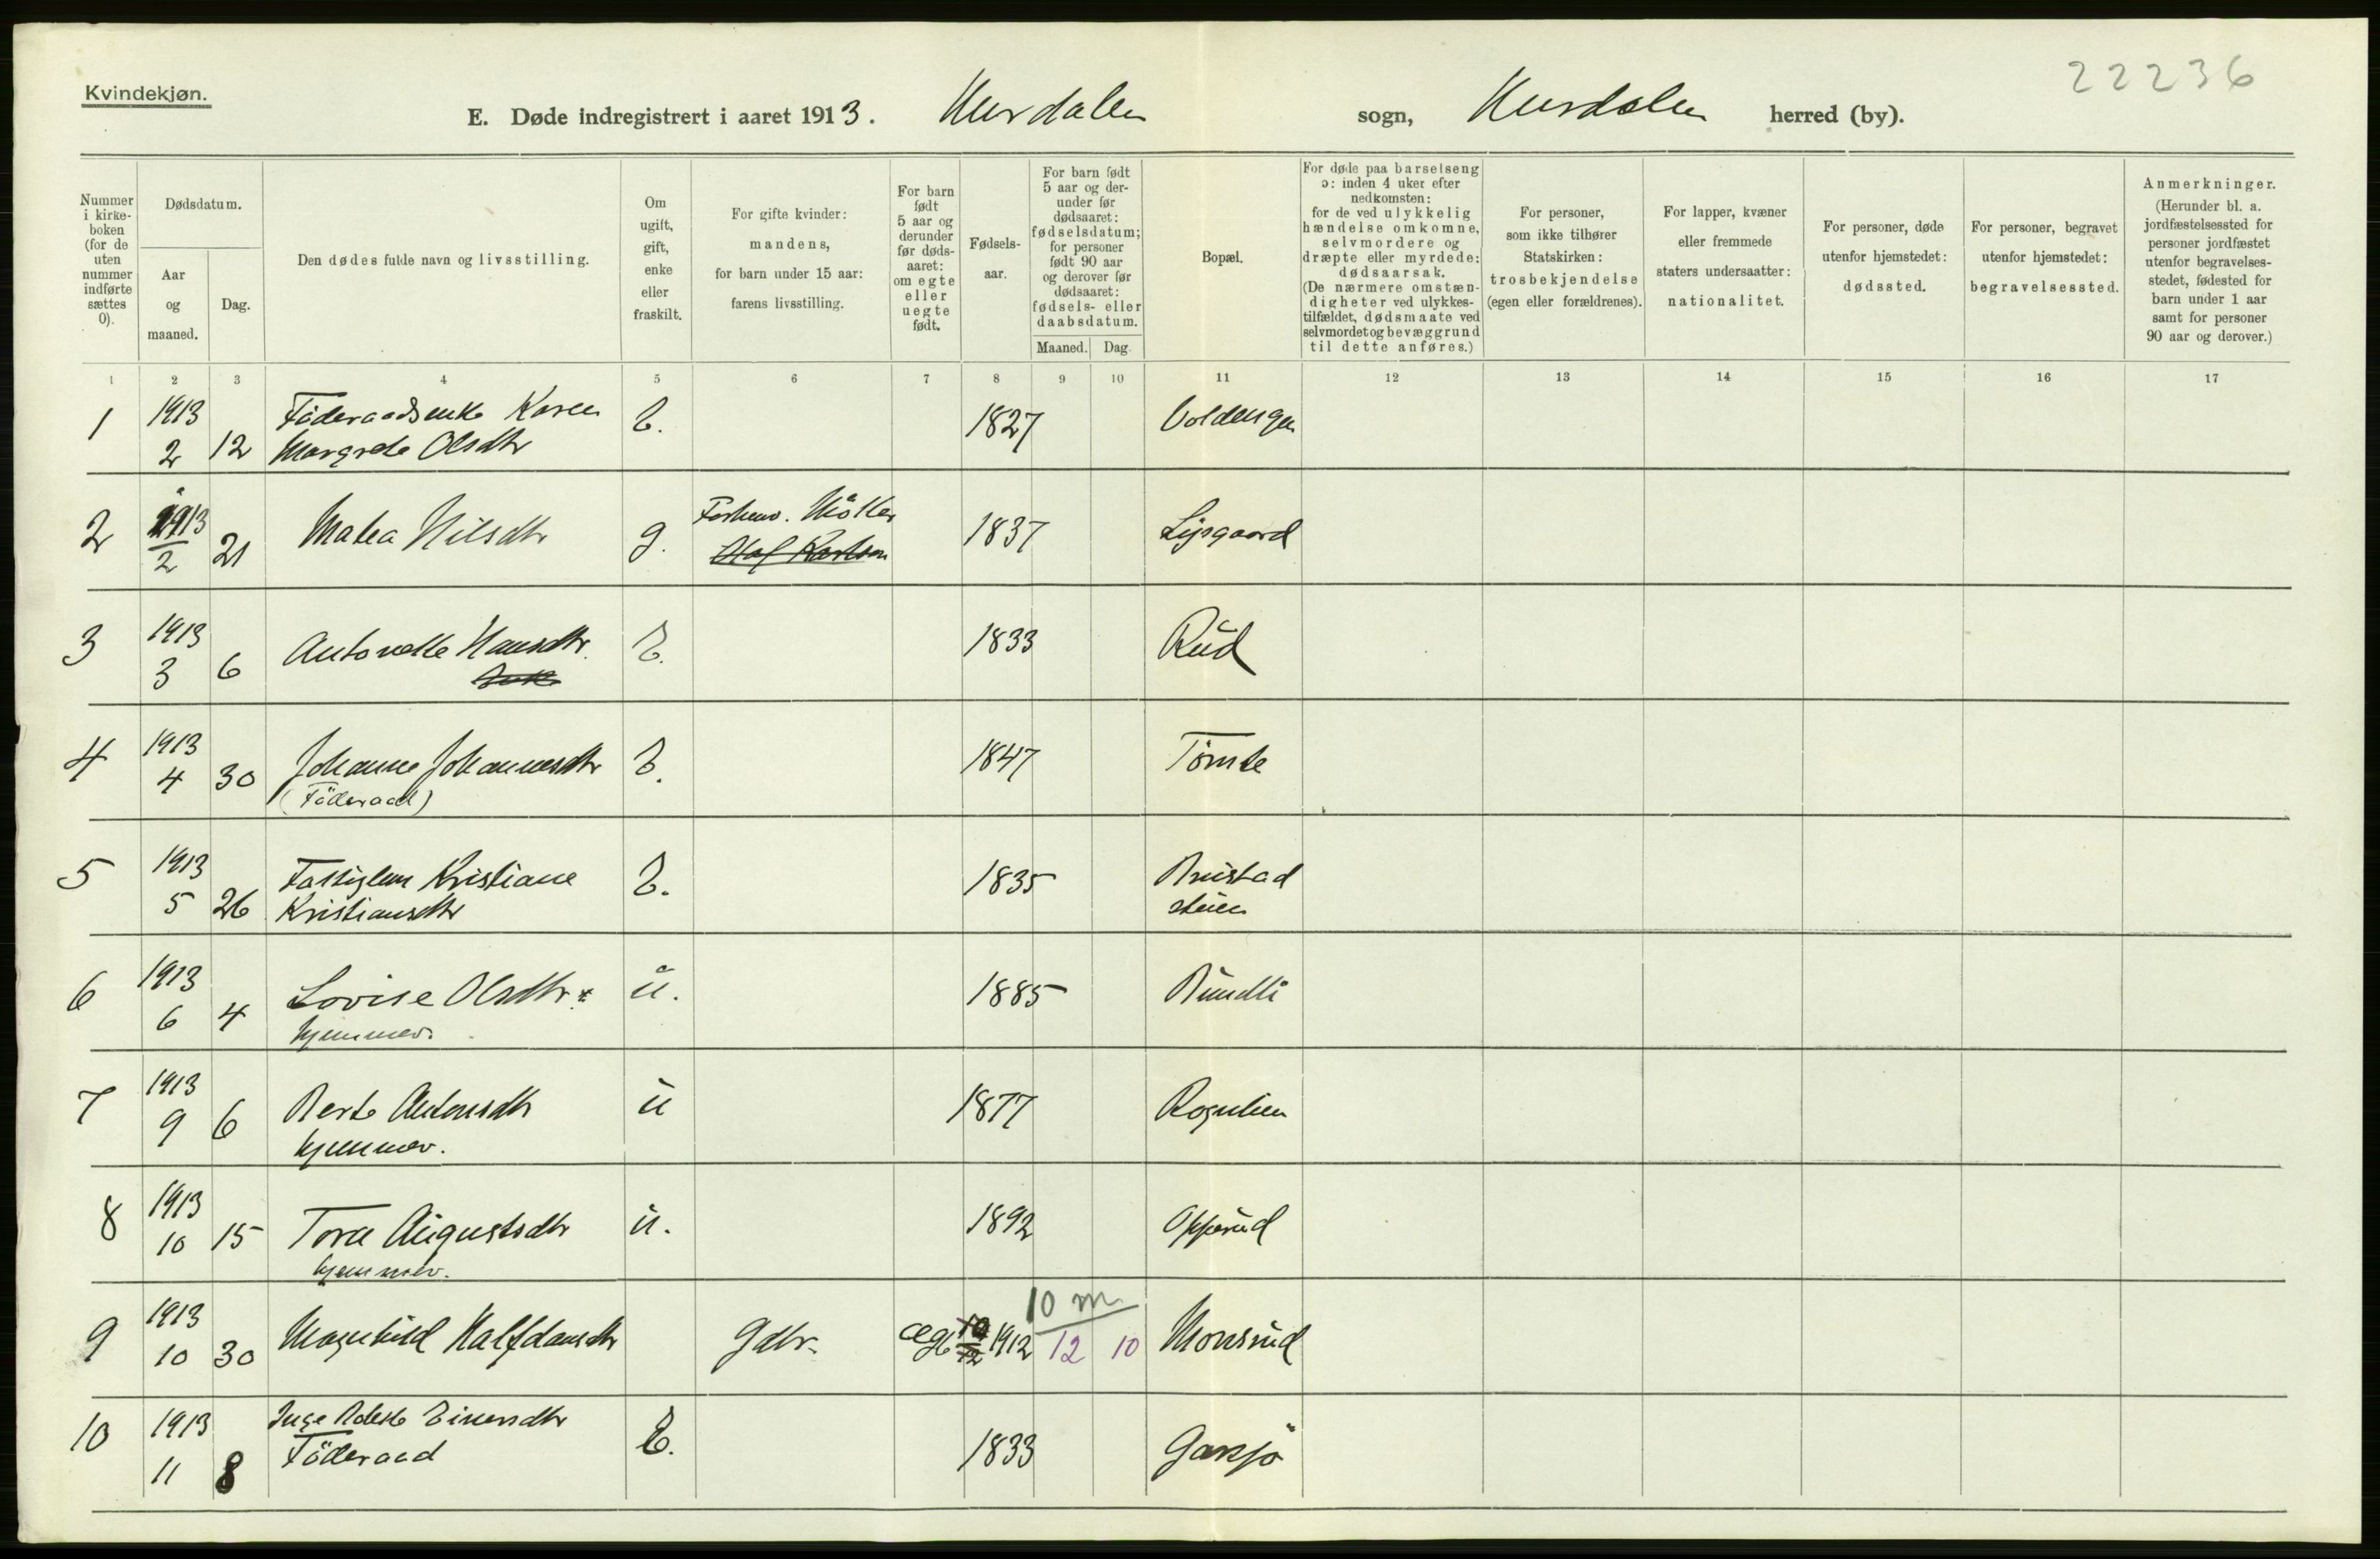 Kvindekjøn.
22236
E. Døde indregistrert i aaret 1913. Hurdalen sogn, Hurdalen herred (by).
Nummer i kirkeboken (for de uten nummer indførte sættes 0).
Dødsdatum.
Aar og maaned.
Dag.
Den dødes fulde navn og livsstilling.
Om ugift, gift, enke eller fraskilt.
For gifte kvinder: mandens, for barn under 15 aar: farens livsstilling.
For barn født 5 aar og derunder før dødsaaret: om egte eller uegte født.
Fødselsaar.
For barn født 5 aar og derunder før dødsaaret: fødselsdatum; for personer født 90 aar og derover før dødsaaret: fødsels- eller daabsdatum.
Maaned. Dag.
Bopæl.
For døde paa barselseng ɔ: inden 4 uker efter nedkomsten: for de ved ulykkelig hændelse omkomne, selvmordere og dræpte eller myrdede: dødsaarsak. (De nærmere omstændigheter ved ulykkestilfældet, dødsmaate ved selvmordet og bevæggrund til dette anføres.)
For personer, som ikke tilhører Statskirken: trosbekjendelse (egen eller forældrenes).
For lapper, kvæner eller fremmede staters undersaatter: nationalitet.
For personer, døde utenfor hjemstedet: dødssted.
For personer, begravet utenfor hjemstedet: begravelsessted.
Anmerkninger. (Herunder bl. a. jordfæstelsessted for personer jordfæstet utenfor begravelsesstedet, fødested for barn under 1 aar samt for personer 90 aar og derover.)
1 2 3 4 5 6 7 8 9 10 11 12 13 14 15 16 17
1 1913 2 12 Föderaadsenke Karen Margrete Olsdtr E. 1827
2 1913 2 21 Matea Nilsdtr g. Möller 1837 Lysgaard
3 1913 3 6 Antonette Hansdtr. E. 1833 Rud
4 1913 4 30 Johanne Johannesdtr (Föderaad) E. 1847 Tömte
5 1913 5 26 Fattiglem Kristiane Kristiansdtr E. 1835
6 1913 6 4 Lovise Olsdtr. hjemmev. u. 1885 Rundli
7 1913 9 6 Berte Antonsdtr hjemmev. u 1877 Rognlien
8 1913 10 15 Tora Augustsdtr hjemmev. u. 1892 Opperud
10 m
9 1913 10 30 Magnhild Halfdansdtr Gdbr. ægte 10 12 1912 12 10 Monsrud
10 1913 11 8 Föderaad E. 1833 Garsjö